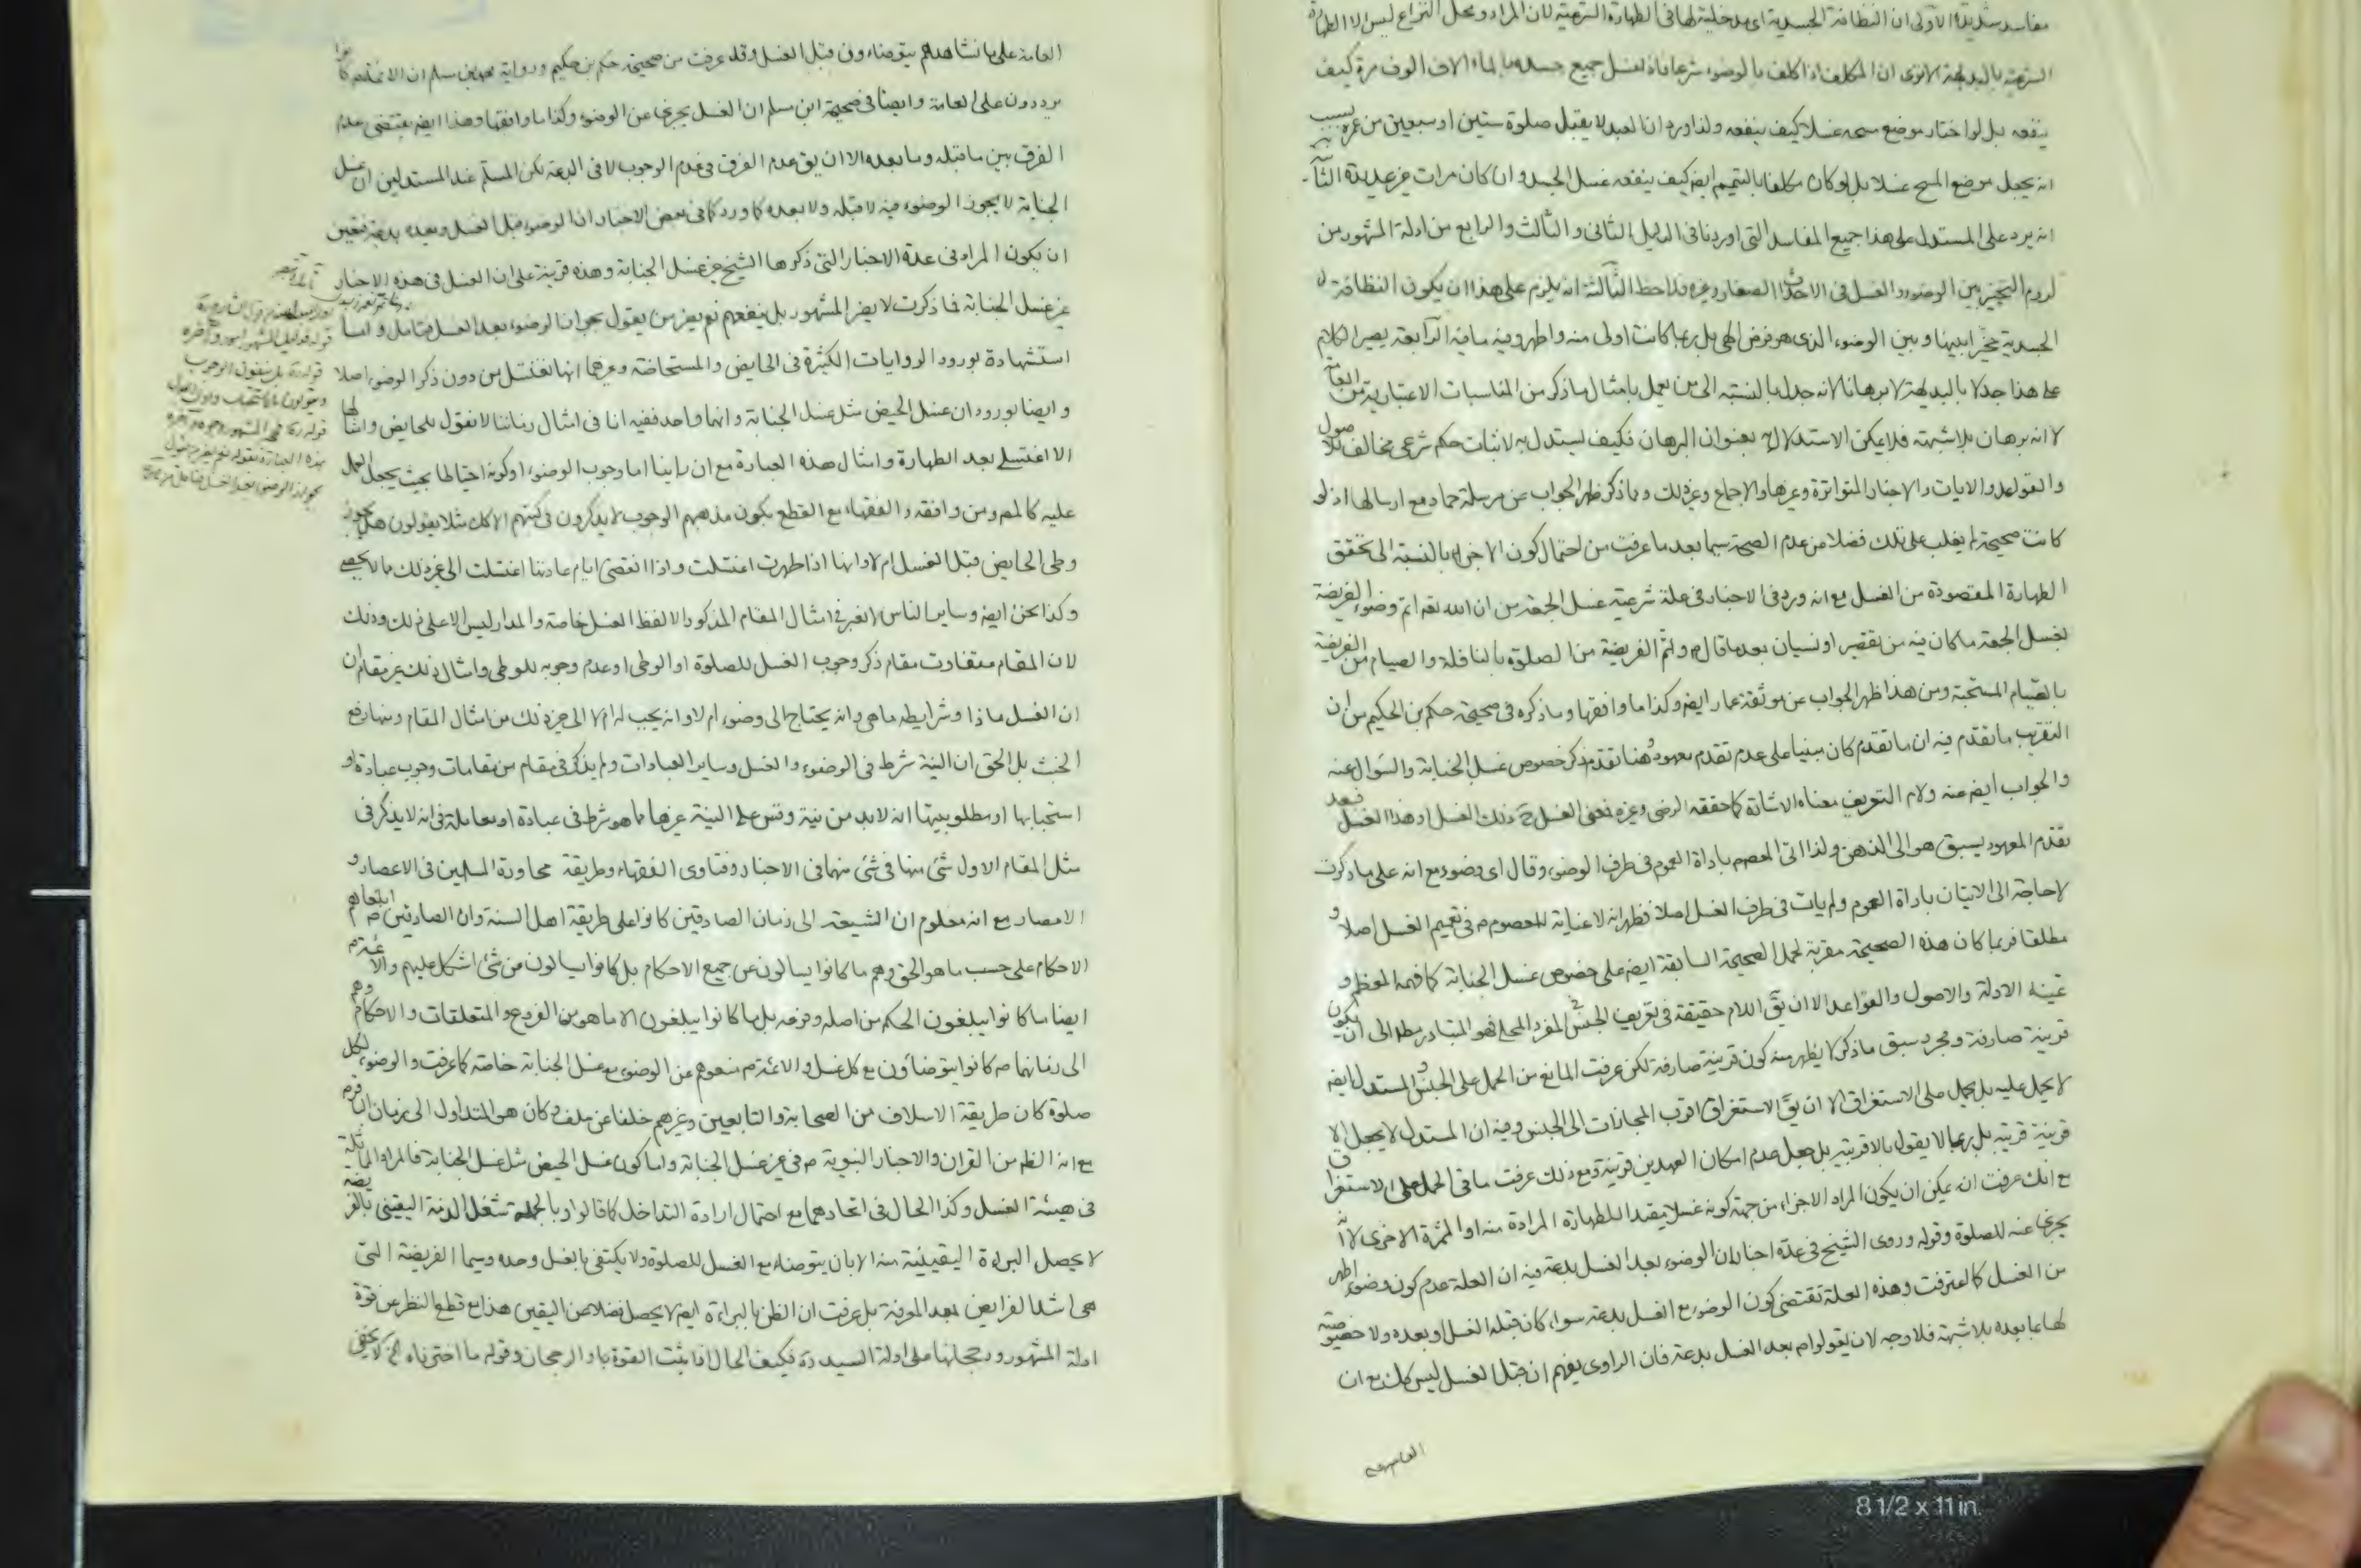 مفاسد شديدة الاولى ان النظافة الجسدية اى مدخلية لها فى الطهارة الشرعية لان المراد ومحل النزاع ليس الا الطهارة
الشرعية بالبديهة الاخرى ان المكلف اذا كلف بالوضوء شرعا فاذا غسل جميع جسده بالماء الاف الوف مرة كيف
ينفعه بل لو اختار موضع مسحه غسلا كيف ينفعه ولذا ورد ان العبد لا يقبل صلوة ستين او سبعين من عمره بسبب
انه يجعل موضع المسح غسلا بل لو كان مكلفا بالتيمم ايضا كيف ينفعه غسل الجسد وان كان مرات عديدة
انه يرد على المستدل على هذا جميع المفاسد التى اوردنا فى الدليل الثانى والثالث والرابع من ادلة المشهور من
لزوم التخيير بين الوضوء والغسل فى الاحداث الصغار وغيره فلاحظ الثالثة انه يلزم على هذا ان يكون النظافة
الجسدية مخيرا بينها وبين الوضوء الذى هو فرض الهى بل ربما كانت اولى منه واطهر وفيه ما فيه الرابعة يصير الكلام
على هذا جدلا بالبديهة لا برهانا لانه جدل بالنسبة الى من يعمل بامثال ما ذكر من المناسبات الاعتبارية من
لا انه برهان بلا شبهة فلا يمكن الاستدلال به بعنوان البرهان فكيف يستدل به لاثبات حكم شرعى مخالف للاصول
والقواعد والايات والاخبار المتواترة وغيرها والاجماع وغير ذلك ومما ذكر ظهر الجواب عن مرسلة حماد مع ارسالها اذ لو
كانت صحيحة لم يغلب على تلك فضلا من عدم الصحة سيما بعد ما عرفت من احتمال كون الاجزاء بالنسبة الى تحقق
الطهارة المقصودة من الغسل مع انه ورد فى الاخبار فى علة شرعية غسل الجمعة من ان الله تعه اتم وضوء الفريضة
بغسل الجمعة ما كان فيه من تقصير او نسيان بعد ما قال واتم الفريضة من الصلوة بالنافلة والصيام من الفريضة
بالصيام المستحبة ومن هذا ظهر الجواب عن موثقة عمار ايضا وكذا ما وافقها وما ذكره فى صحيحة حكم بن الحكيم من ان
التقريب ما تقدم فيه ان ما تقدم كان مبنيا على عدم تقدم معهود وهنا تقدم ذكر خصوص غسل الجنابة والسؤال عنه
والجواب ايضا عنه ولام التعريف معناه الاشارة كما حققه الرضى وغيره فمعنى الغسل ح ذلك الغسل او هذا الغسل فبعد
تقدم المعهود يسبق هو الى الذهن ولذا اتى المعصوم باداة العموم فى طرف الوضوء وقال اى وضوء مع انه على ما ذكرت
لا حاجة الى الاتيان باداة العموم ولم يات فى طرف الغسل اصلا فظهر انه لا عناية للمعصوم م فى تعميم الغسل اصلا و
مطلقا فربما كان هذه الصحيحة مقربة لحمل الصحيحة السابقة ايضا على خصوص غسل الجنابة كما فهمه المعظم و
عينه الادلة والاصول والقواعد الا ان يق اللام حقيقة فى تعريف الجنس فى المفرد المحلى فهو المتبادر مطلقا الى ان يكون
قرينة صارفة ومجرد سبق ما ذكر لا يظهر منه كون قرينة صارفة لكن عرفت المانع من الحمل على الجنس والمستدل ايضا
لا يحمل عليه بل يحمل على الاستغراق الا ان يق الاستغراق اقرب المجازات الى الجنس وفيه ان المستدل لا يجعل الا
قرينة قريبة بل ربما لا يقول بالاقربية بل جعل عدم امكان العهدين قرينة ومع ذلك عرفت ما فى الحمل على الاستغراق
مع انك عرفت انه يمكن ان يكون المراد الاجزاء من جهة كونه غسلا مفيدا للطهارة المرادة منه او المثمرة الاخرى لا انه
يجزى عنه للصلوة وقوله وروى الشيخ فى عدة اخبار ان الوضوء بعد الغسل بدعة فيه ان العلة عدم كون وضوء اطهر
من الغسل كما اعترفت وهذه العلة تقتضى كون الوضوء مع الغسل بدعة سواء كان قبله الغسل او بعده ولا خصوصية
لها بما بعده بلا شبهة فلا وجه لان يقولوا م بعد الغسل بدعة فان الراوى يفهم ان قبل الغسل ليس كك مع ان
العامة
العامة على ما نشاهدهم يتوضاءون قبل الغسل وقد عرفت من صحيحة حكم بن حكيم ورواية محمد بن مسلم ان الائمة م كانوا
يرددون على العامة وايضا فى صحيحة ابن مسلم ان الغسل يجزى عن الوضوء وكذا ما وافقها وهذا ايضا يقتضى عدم
الفرق بين ما قبله وما بعده الا ان يق عدم الفرق فى عدم الوجوب لا فى البدعة لكن المسلم عند المستدلين ان غسل
الجنابة لا يجوز الوضوء فيه لا قبله ولا بعده كما ورد كما فى بعض الاخبار ان الوضوء قبل الغسل وبعده بدعة فتعين
ان يكون المراد فى عدة الاخبار التى ذكرها الشيخ غير غسل الجنابة وهذه قرينة على ان الغسل فى هذه الاخبار
غير غسل الجنابة فما ذكرت لا يضر المشهور بل ينفعهم نعم يضر من يقول بجواز الوضوء بعد الغسل فتامل واما
استشهاده بورود الروايات الكثيرة فى الحايض والمستحاضة وغيرهما انها تغتسل من دون ذكر الوضوء اصلا
وايضا بورود ان غسل الحيض مثل غسل الجنابة وانهما واحد ففيه انا فى امثال زماننا لا نقول للحايض وامثالها
الا اغتسلى بعد الطهارة وامثال هذه العبارة مع ان راينا اما وجوب الوضوء او كونه احتياطا بحيث يجعل العمل
عليه كالمصر ومن وافقه والفقهاء مع القطع بكون مذهبهم الوجوب لا يذكرون فى كتبهم الا كك مثلا يقولون هل يجوز
وطى الحايض قبل الغسل ام لا وانها اذا طهرت اغتسلت واذا انقضى ايام عادتها اغتسلت الى غير ذلك مما لا يحصى
وكذا نحن ايضا وساير الناس لا نعبر فى امثال المقام المذكور الا لفظ الغسل خاصة والمدار ليس الا على ذلك وذلك
لان المقام متفاوت مقام ذكر وجوب الغسل للصلوة او الوطى او عدم وجوبه للوطى وامثال ذلك غير مقام ان
ان الغسل ماذا وشرايطه ما هى وانه يحتاج الى وضوء ام لا وانه يجب له ام لا الى غير ذلك من امثال المقام ومنها رفع
الخبث بل الحق ان النية شرط فى الوضوء والغسل وساير العبادات ولم يذكر فى مقام من مقامات وجوب عبادة او
استحبابها او مطلوبيتها انه لا بد من نية وقس على النية غيرها مما هو شرط فى عبادة او معاملة فى انه لا يذكر فى
مثل المقام الاول شئ منها فى شئ منهما فى الاخبار وفتاوى الفقهاء وطريقة محاورة المسلمين فى الاعصار و
الامصار مع انه معلوم ان الشيعة الى زمان الصادقين كانوا على طريقة اهل السنة وان الصادقين م ابلغاهم
الاحكام على حسب ما هو الحق وهم ما كانوا يسالون عن جميع الاحكام بل كانوا يسالون من شئ اشكل عليهم والائمة م
ايضا ما كانوا يبلغون الحكم من اصله وفرعه بل ما كانوا يبلغون الا ما هو من الفروع والمتعلقات والاحكام وهم
الى زمانهما م كانوا يتوضاؤن مع كل غسل والائمة م منعوهم عن الوضوء مع غسل الجنابة خاصة كما عرفت والوضوء لكل
صلوة كان طريقة الاسلاف من الصحابة والتابعين وغيرهم خلفا عن سلف وكان هو المتداول الى زمان
مع انه الظاهر من القران والاخبار النبوية م فى غير غسل الجنابة واما كون غسل الحيض مثل غسل الجنابة فالمراد المماثلة
فى هيئة الغسل وكذا الحال فى اتحادهما مع احتمال ارادة التداخل كما قالوا وبالجملة شغل الذمة اليقينى بالفريضة
لا يحصل البراءة اليقينية منه الا بان يتوضاء مع الغسل للصلوة ولا يكتفى بالغسل وحده وسيما الفريضة التى
هى اشد الفرايض بعد المعرفة بل عرفت ان الظن بالبراءة ايضا لا يحصل فضلا عن اليقين هذا مع قطع النظر عن قوة
ادلة المشهور ورجحانها على ادلة السيد ره فكيف الحال اذا بنت القوة والرجحان وقوله ما اخترناه لا يخفى